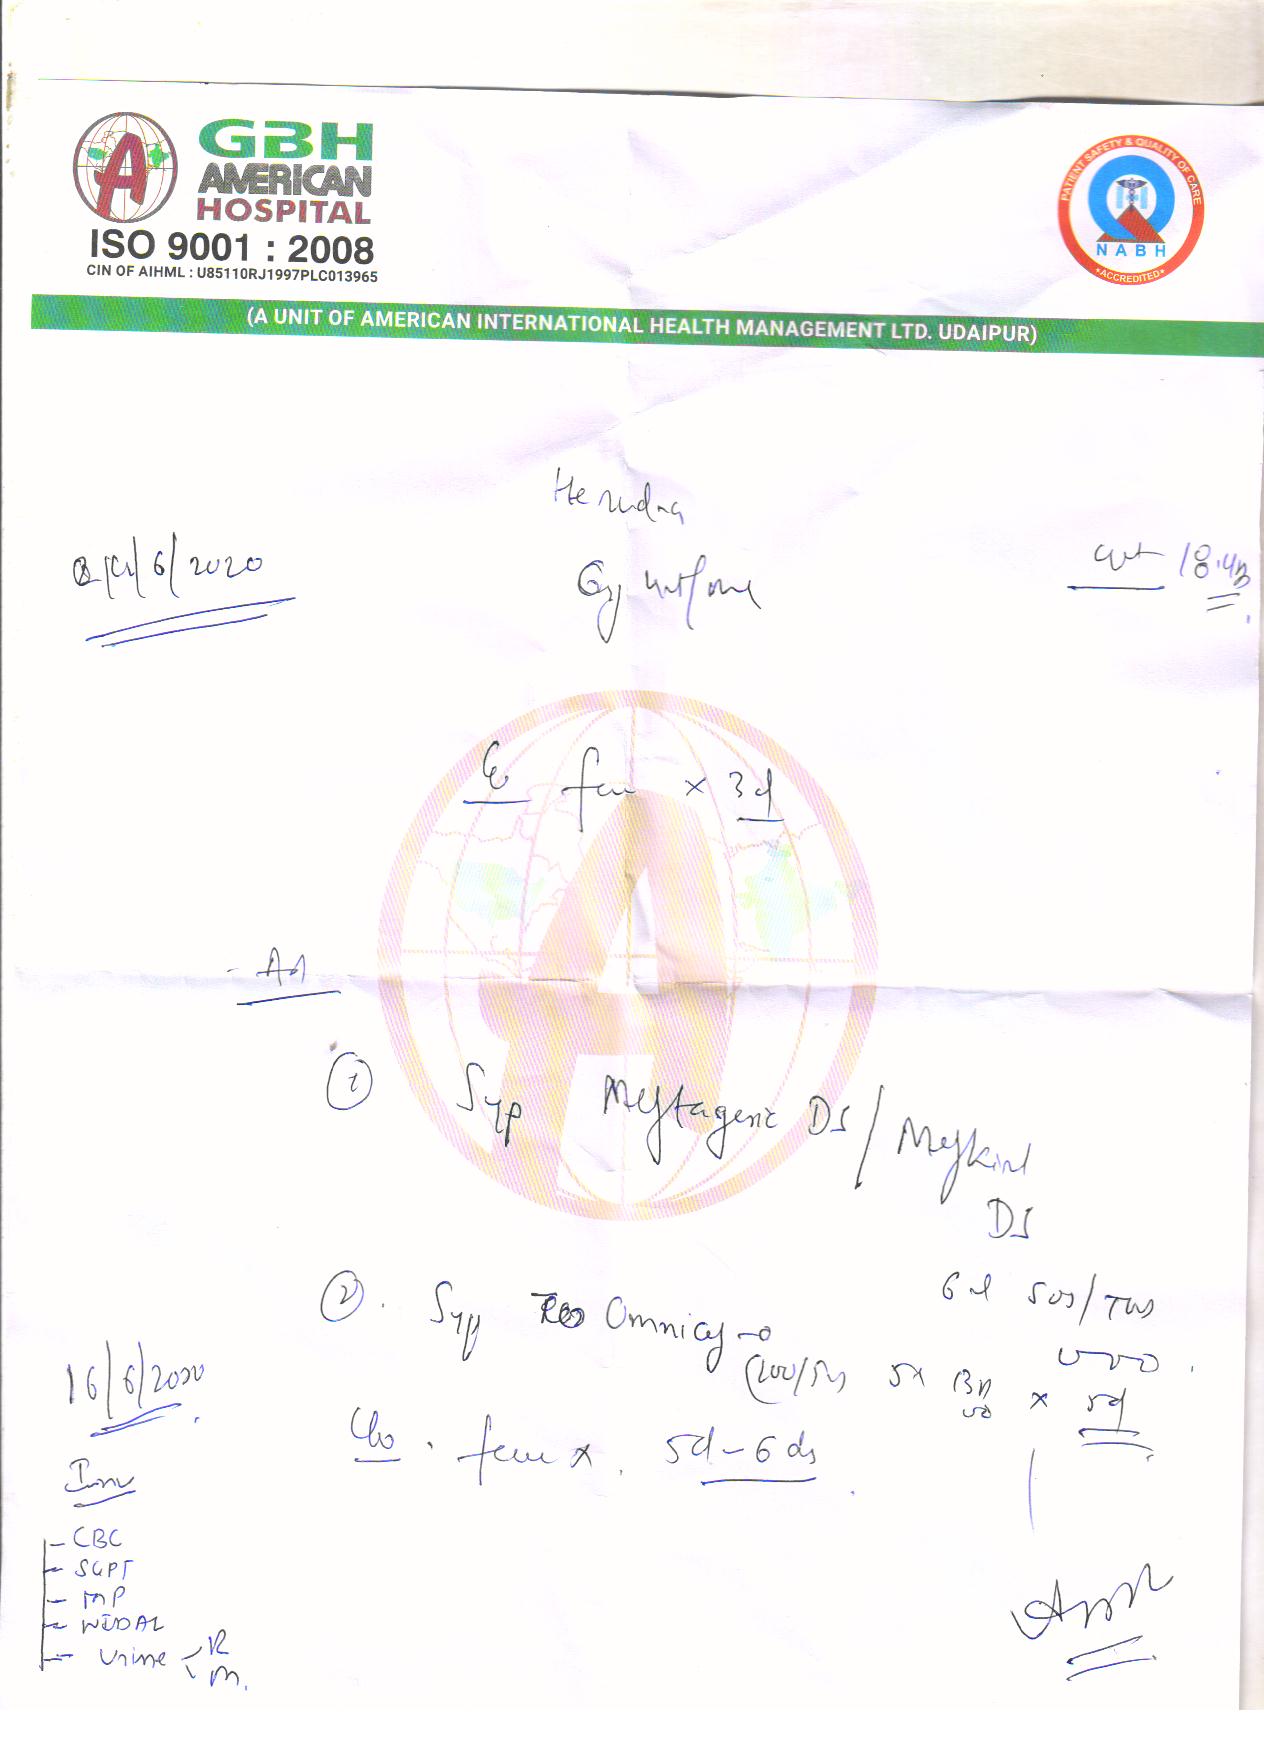 GBH
AMERICAN
HOSPITAL
ISO 9001 : 2008
CIN OF AIHML : U85110RJ1997PLC013965
PATIENT SAFETY & QUALITY OF CARE
NABH
ACCREDITED
(A UNIT OF AMERICAN INTERNATIONAL HEALTH MANAGEMENT LTD. UDAIPUR)
/6/2020
wt 18.43
x 3d
Ad
① Syp Meftagesic DS / Mefkind
DS
6 ml SOS/TDS
② Syp Omnicef-O
(100/5) 5 x BD x 5d
16/6/2020
C/o fever x 5d-6ds
Inv
- CBC
- SGPT
- MP
- WIDAL
- Urine < R
M